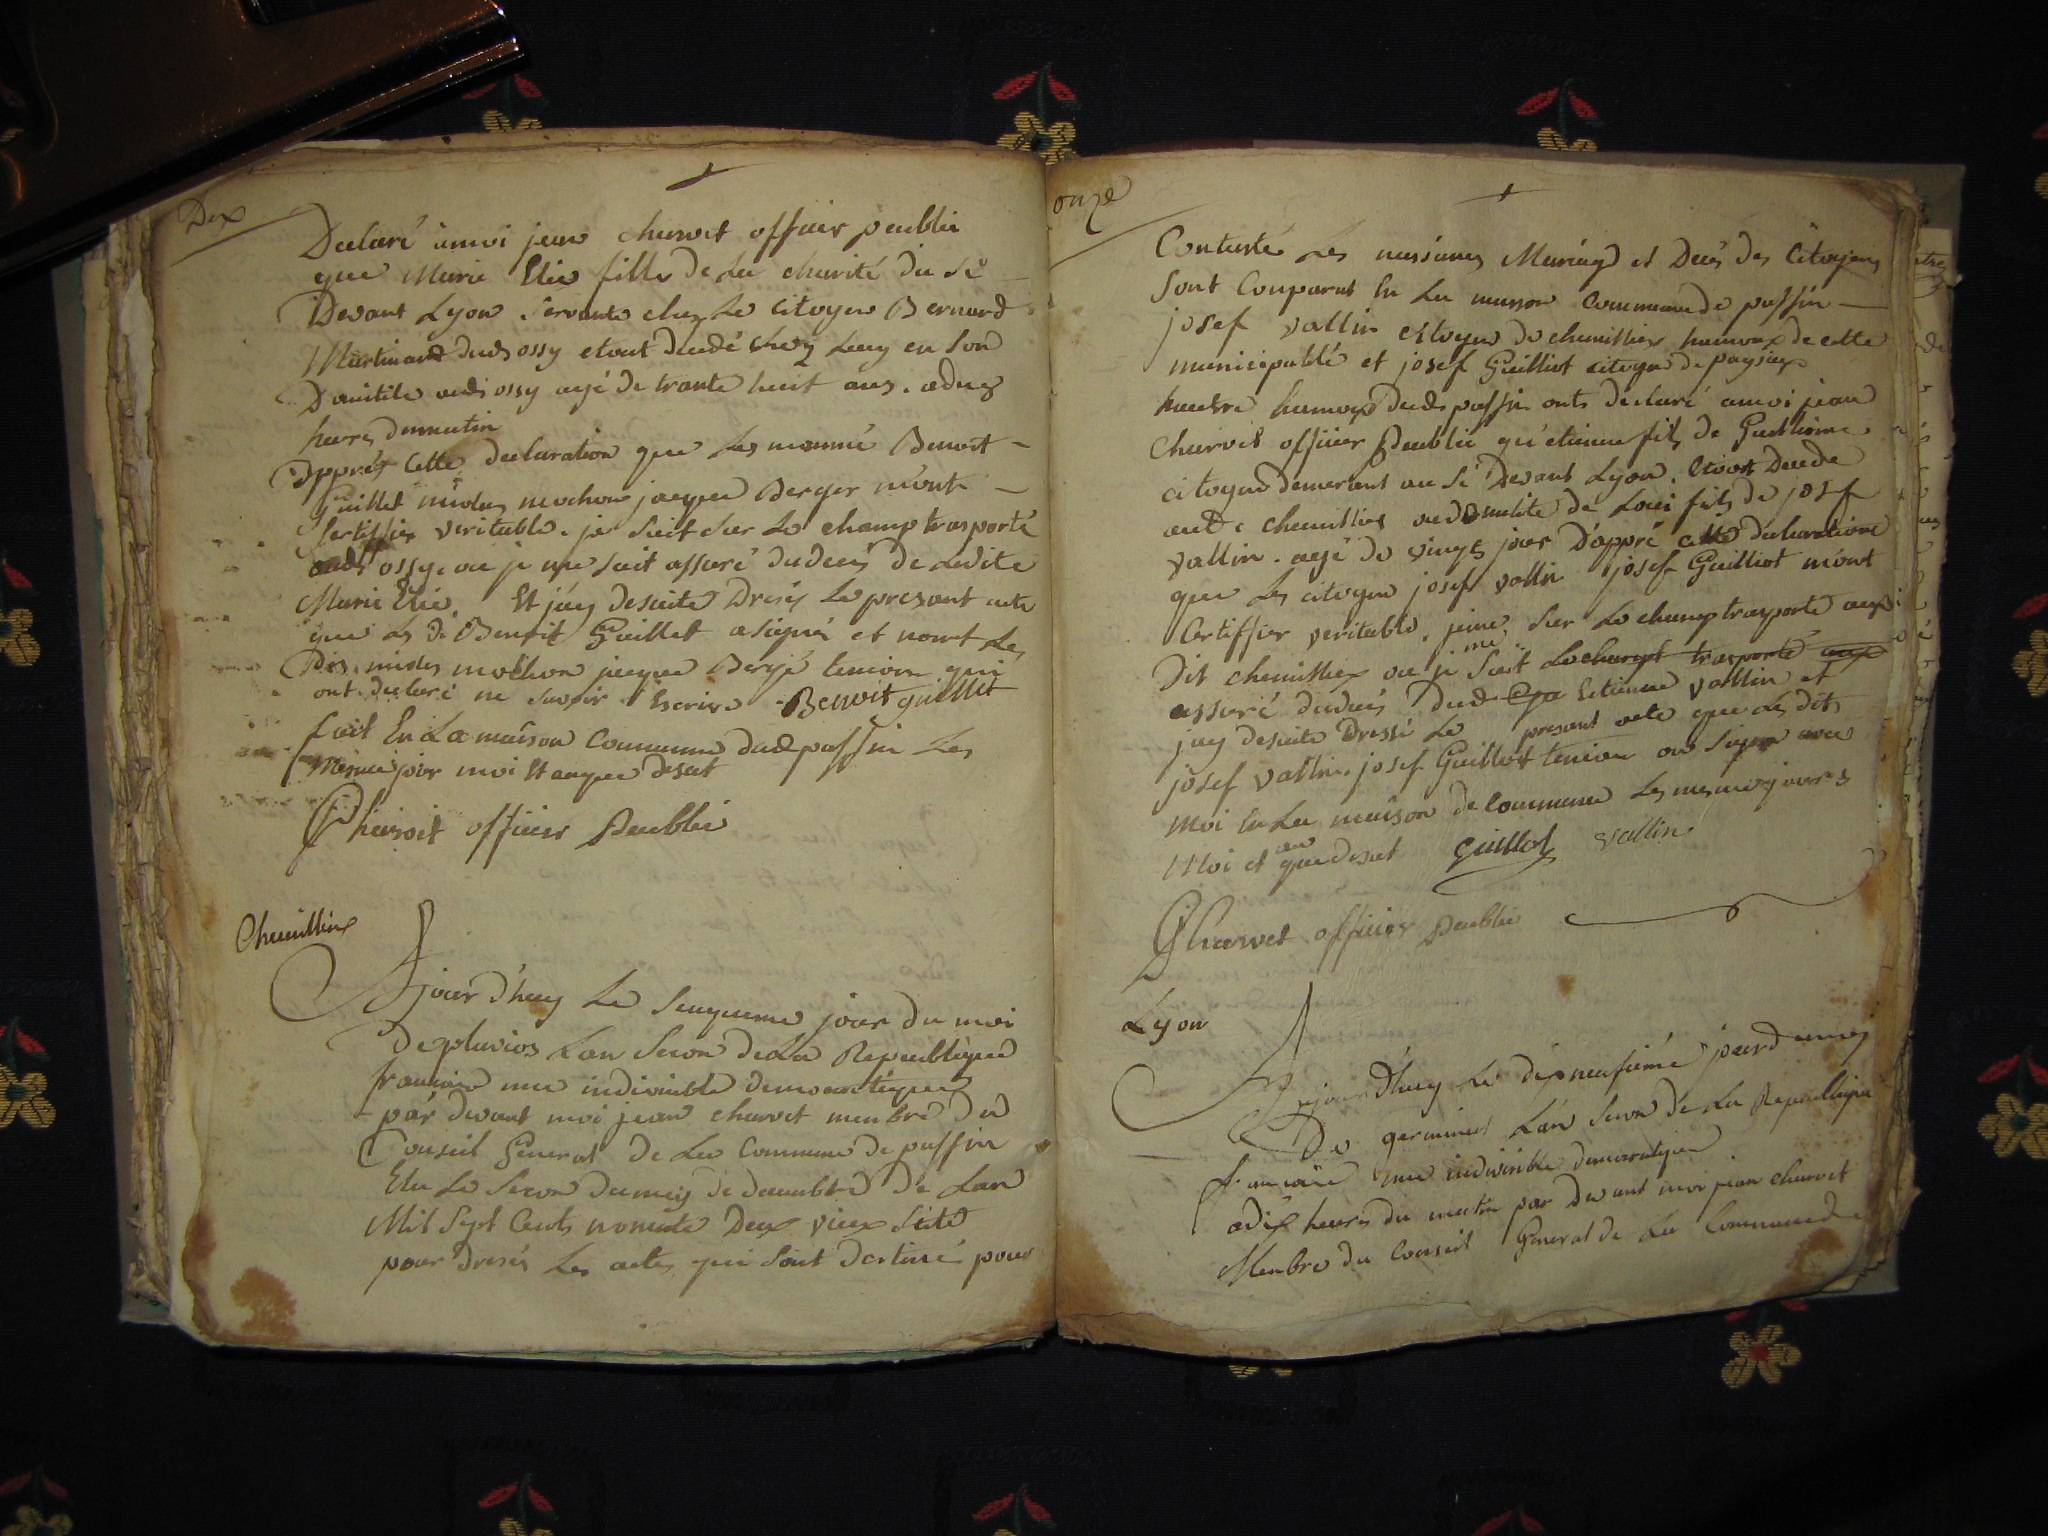 Dix
Declaré a moi jean charvet officier peublic
que Marie Elie fille de La charité du si
Devant Lyon servante chez Le citoyen Bernard
Martinand dud ossy etout decedé chez Luy en son
Domicile aud ossy agé de trante huit ans. a deux
heures du matin
Dapprés Cette declaration que Les nommé Benoit
Guillet mides mochon jacque Berger m'ont
Sertiffier veritable. je suit sur Le champ trasporté
aud ossy. ou je me suit assuré du deces de Ladite
Marie Elie. Et j'ay desuite Dresés Le presant acte
que Le di Benoit Guillet a signés et nomt Les
Dis. mides mochon jacque Bergé temoin qui
ont declaré ne savoir Escrire Benoit guillet
fait En La maison Commune dud passin Les
mesme jour moi Et an que desut
Charvet officier Peublic
Cheuillieu
Ajourd'huy Le sinquieme jour du moi
De pluvios Lan Secon de La Republique
francaise une indivisible democratique
par devant moi jean charvet menbre du
Conseil General de La Commune de passin
Elu Le Secon du mois de decembre de Lan
Mil Sept Cents nonante Deux vieux stile
pour dresés Les actes qui sont destiné pour
onze
Contasté Les nessances Mariage et Deces des Citoyens
Sont Conparut En La maison Commune de passin
josef vallin citoyen de cheuillieu hamaux de cette
municipalité et josef Guilliot citoyen de
hautre hamaux dud passin onts declaré a moi jean
charvet officier Peublic qu'etienne fils de Guilliome
citoyen demeurant au Si Devant Lyon. Etout Decede
aud cheuillieu au domicile de Loui fils de josef
vallin. agé de vingts jour D'appré cette declaration
que Les citoyen josef vallin josef Guilliot m'ont
Certiffier veritable. jeme sur Le champ trasporté aux
Dit cheuillieu ou je me suit Lechampt trasporté aux
assuré du deces dud Etienne vallin et
jay desuite Dressé Le presant acte que Les dits
josef vallin. josef Guilliot temoin on signe avec
moi En La maison de Commune Les mesme jours
Moi et an que desut Guilliot vallin
Charvet officier Peublic
Lyon
Aujourd'huy Le dixneufiemé jour du mois
De germinal L'an Secon de La Republique
francaise une indivisible democratique
a dix heures du matin par devant moi jean charvet
Menbre du Conseil General de La Commune de